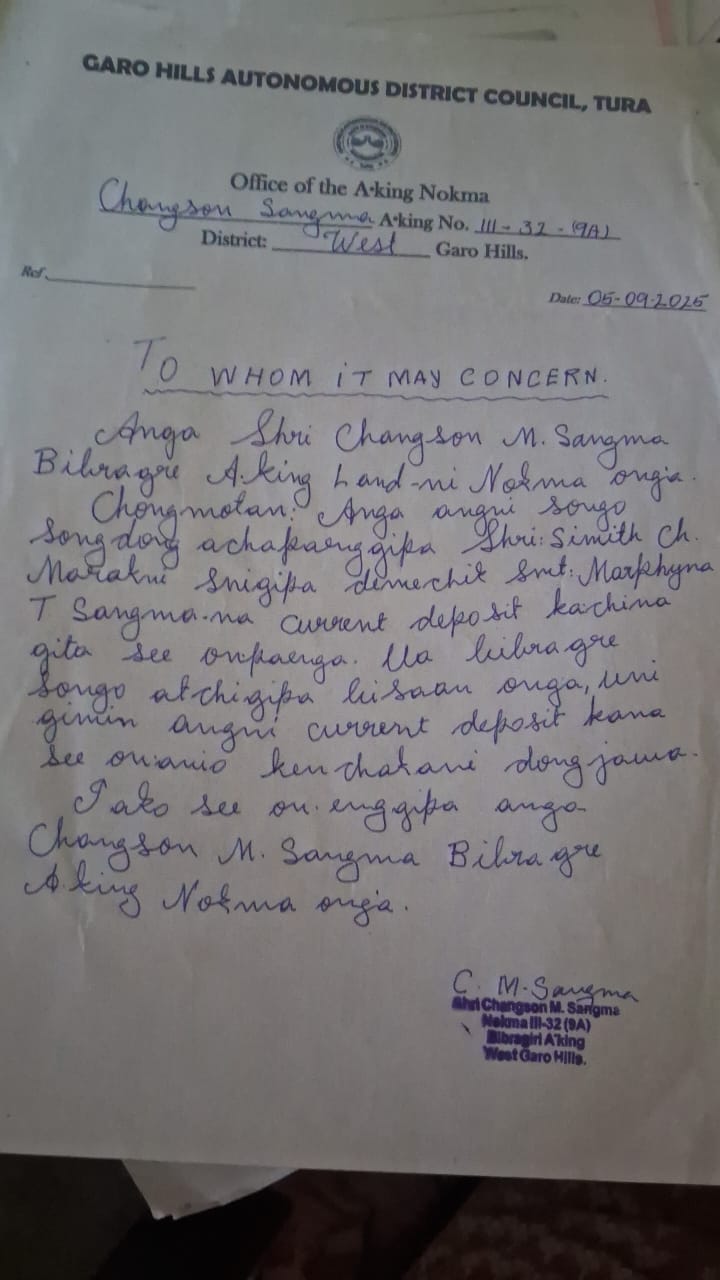 GARO HILLS AUTONOMOUS DISTRICT COUNCIL, TURA
Office of the A·king Nokma
Changson Sangma A·king No. III - 32 - (9A)
District: West Garo Hills.
Ref.
Date: 05-09-2025
TO WHOM iT MAY CONCERN.
Anga Shri Changson M. Sangma
Bibragre A·king Land-ni Nokma onga.
Chongmotan: Anga angni songo
Songdong achakaenggipa Shri: Simith Ch.
Marakni Snigipa demechik Smt: Markhyna
T Sangma-na current deposit ka·china
gita see on·kaenga. Ua bibragre
Songo atchigipa bisaan onga, uni
gimin angni current deposit kana
see on·anio kenchakani dongjawa.
Iako see on·enggipa anga
Changson M. Sangma Bibragre
A·king Nokma onga.
C. M. Sangma
Shri Changson M. Sangma
Nokma III-32 (9A)
Bibragiri A'king
West Garo Hills.